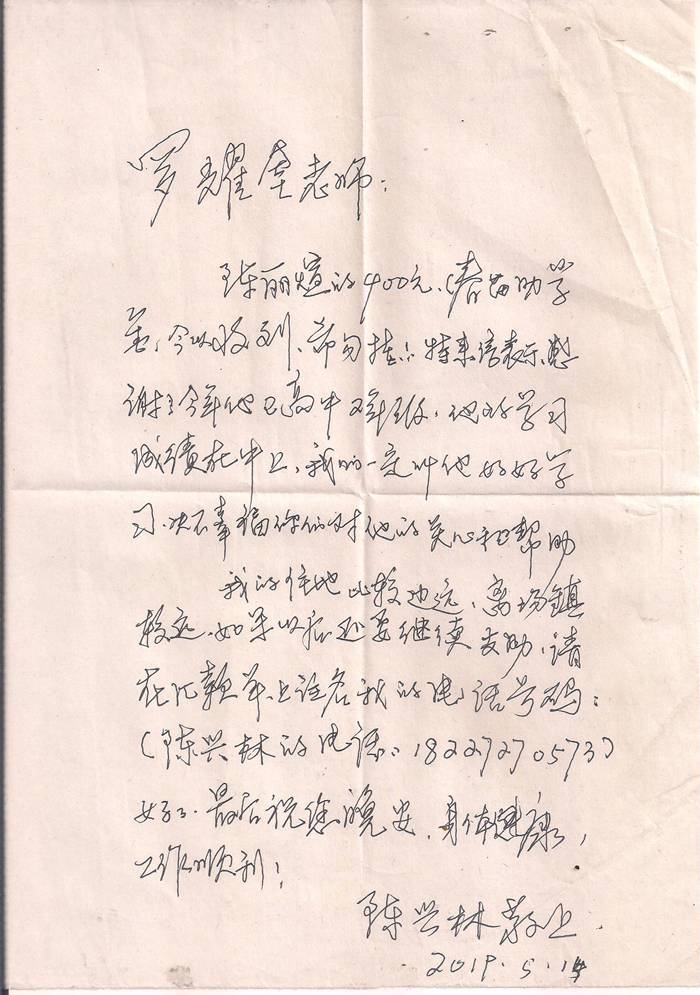 罗耀奎老师:
陈丽煊的400元、(春苗助学
金)今以收到、希勿挂。特来信表示感
谢!今年他已高中2年级、他的学习
成绩在中上、我们一定叫他好好学
习、决不辜福你们对他的关心和帮助
我的住地比较边远、离场镇
较远、如果以后还要继续支助、请
在汇款单上注名我的电话号码:
(陈兴林的电话:18227270573)
好了、最后祝您晚安、身体健康,
工作顺利!
陈兴林敬上
2019.5.14